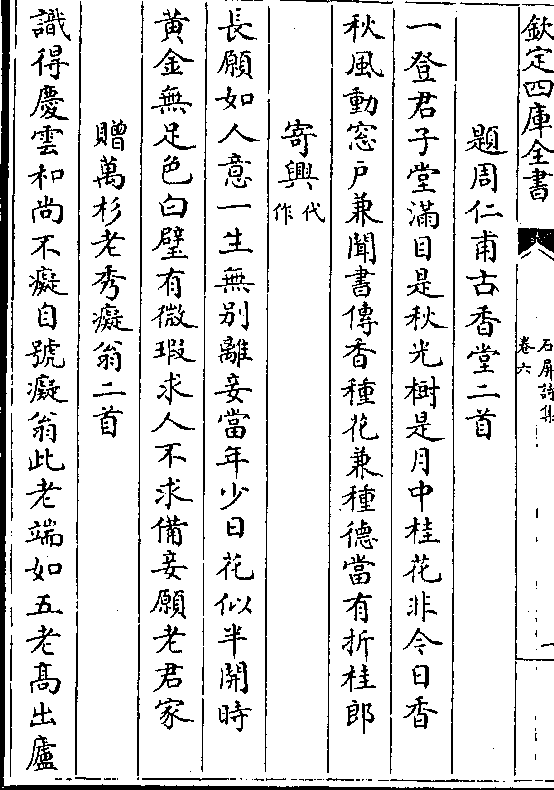 欽定四庫全書
石屏詩集
卷六
題周仁甫古香堂二首
一登君子堂滿目是秋光樹是月中桂花非今日香
秋風動窓戶兼聞書傳香種花兼種德當有折桂郎
寄興代作
長願如人意一生無别離妾當年少日花似半開時
黃金無足色白璧有微瑕求人不求備妾願老君家
贈萬杉老秀癡翁二首
識得慶雲和尚不癡自號癡翁此老端如五老髙出廬